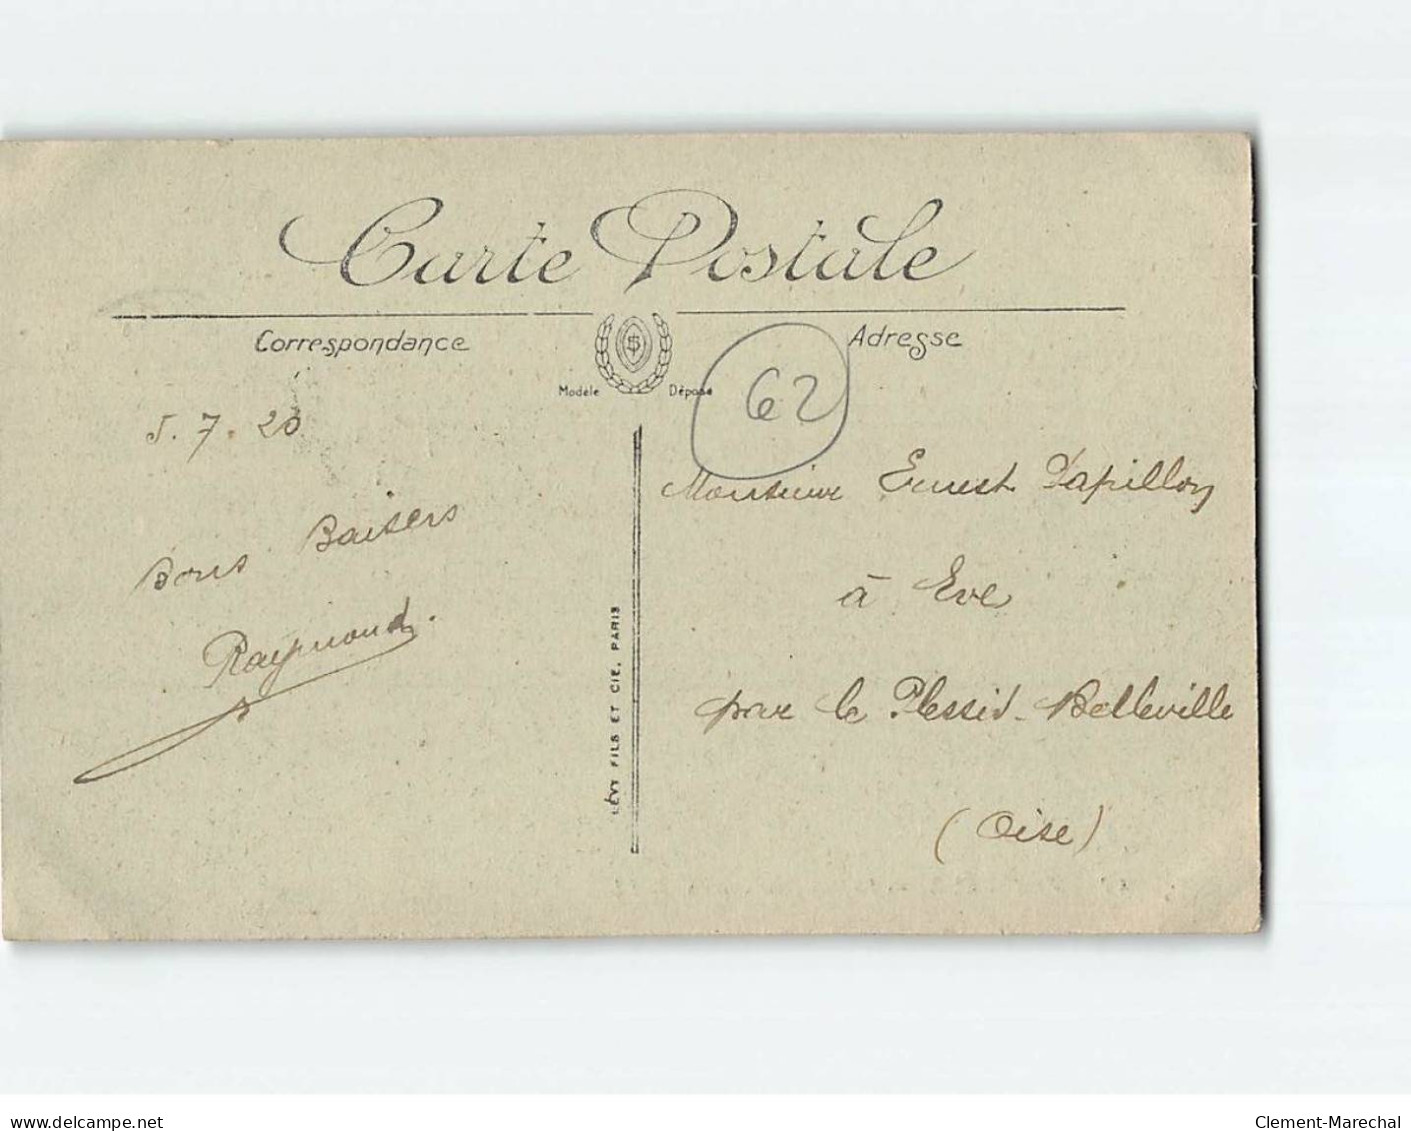 Carte Postale
Correspondance
Adresse
Modèle Déposé
62
5.7.20
Bons Baisers
Raymond.
LÉVY FILS ET CIE, PARIS
Monsieur Ernest Papillon
à Eve
par le Plessis-Belleville
(Oise)
www.delcampe.net
Clement-Marechal